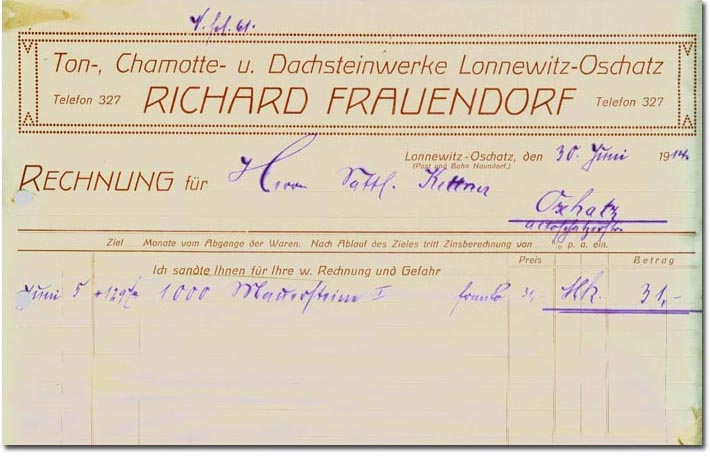 Ton-, Chamotte- u. Dachsteinwerke Lonnewitz-Oschatz
Telefon 327 RICHARD FRAUENDORF Telefon 327
Lonnewitz-Oschatz, den 30. Juni 1914.
(Post und Bahn Naundorf.)
RECHNUNG für Herrn Sattl. Kettner
Oschatz
Ziel Monate vom Abgange der Waren. Nach Ablauf des Zieles tritt Zinsberechnung von % p. a. ein.
Preis Betrag
Ich sandte Ihnen für Ihre w. Rechnung und Gefahr
Juni 5 1000 Mauersteine I franko 31,- Mk. 31,-